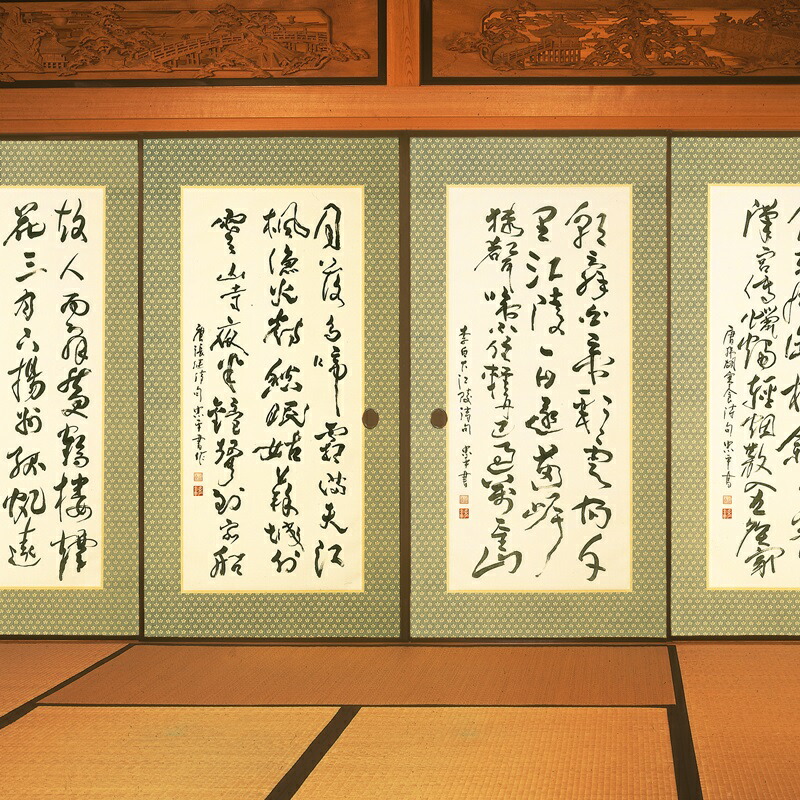 漢宮傳蠟燭輕烟散入五侯家
唐韓翃寒食詩句 忠平書
朝辞白帝彩雲間千
里江陵一日還萬岸
猿聲啼不住輕舟已過萬重山
李白下江陵詩句 忠平書
月落烏啼霜満天江
楓漁火對愁眠姑蘇城外
寒山寺夜半鐘聲到客船
唐張継詩句 忠平書作
故人西辞黄鶴楼煙
花三月下揚州孤帆遠